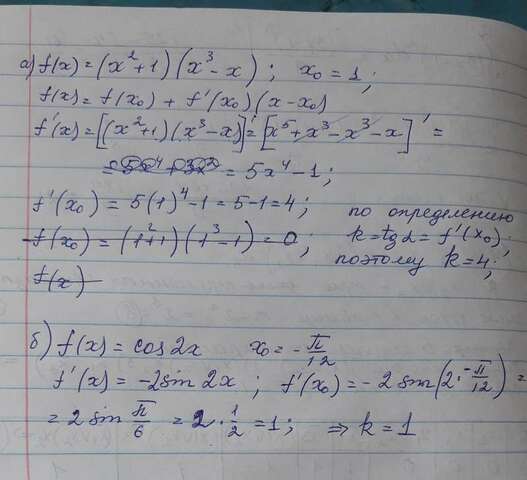 а) f(x) = (x²+1)(x³-x) ; x₀ = 1.
f(x) = f(x₀) + f'(x₀)(x-x₀) ;
f'(x) = [(x²+1)(x³-x)]' = [x⁵+x³-x³-x]' =
= 5x⁴-1 ;
f'(x₀) = 5(1)⁴-1 = 5-1 = 4 ; по определению
f(x₀) = (1²+1)(1³-1) = 0 ; k = tgα = f'(x₀).
f(x) поэтому k = 4 ;
б) f(x) = cos2x x₀ = -π/12
f'(x) = -2sin2x ; f'(x₀) = -2sin(2·-π/12) =
= 2sin π/6 = 2·1/2 = 1 ; ⇒ k = 1